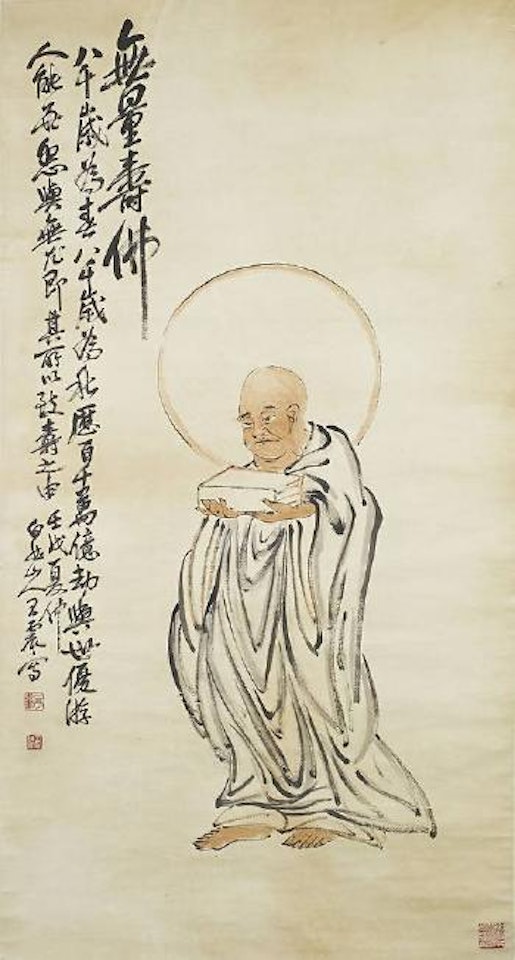 無量壽佛
八千歲為春八千歲為秋歷百千萬億劫與世優游
人能無怨與無尤即其所以致壽之由 壬戌夏仲
白龍山人王震寫